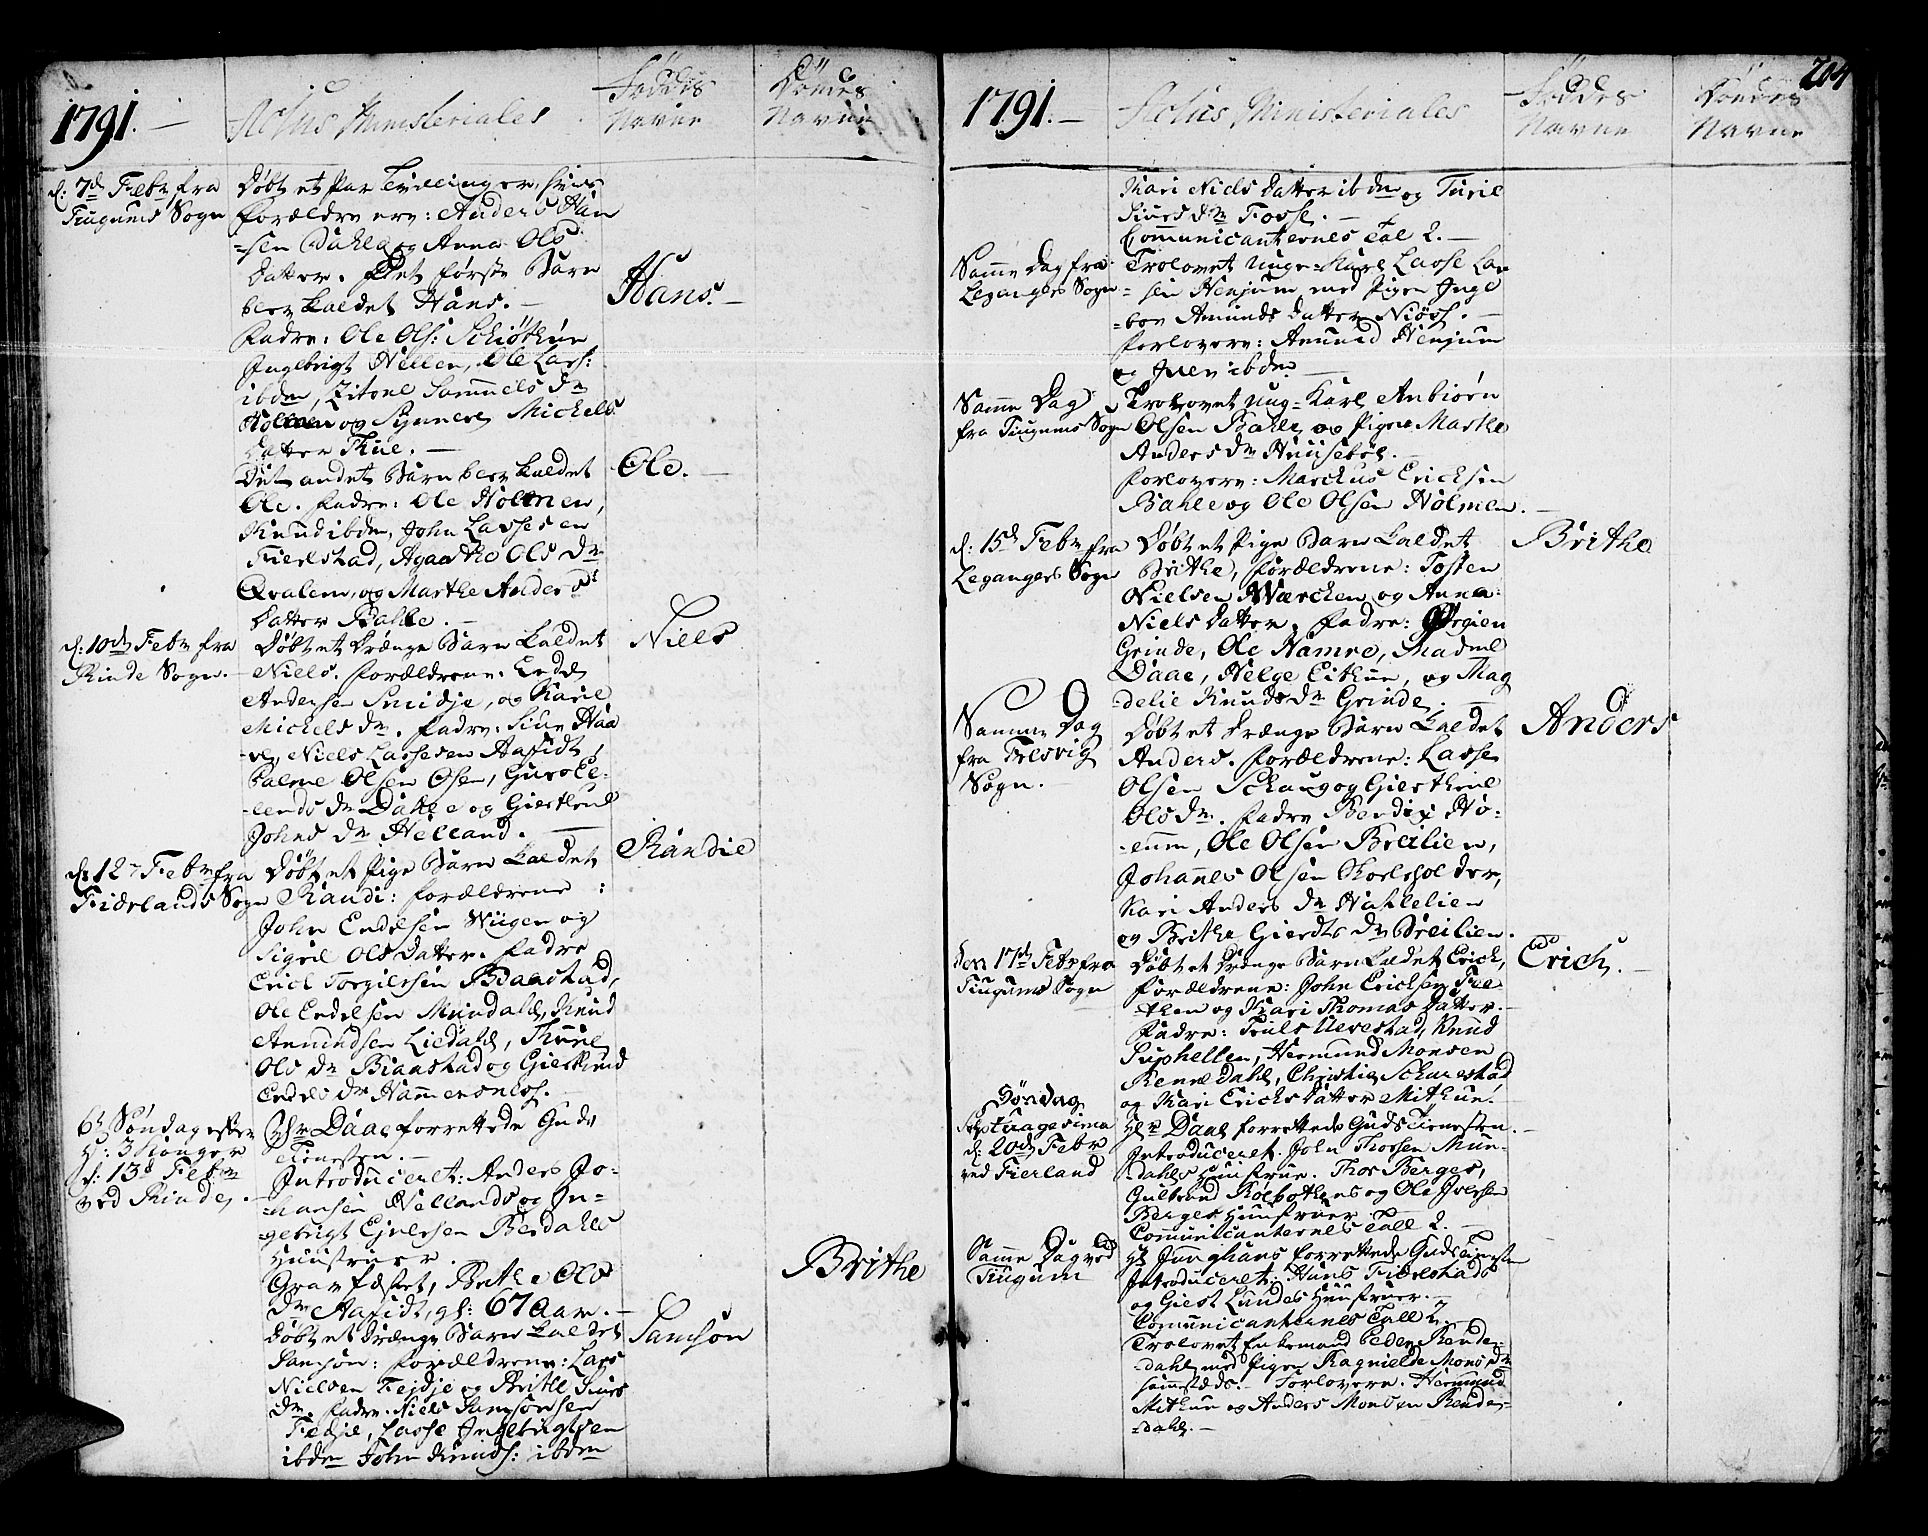 1791.
Actus Ministeriales
Føddes
Navne
Dødes
Navne
d: 7d Febr fra
Tiugums Sogn
Døbt et Par Tvillinger, hvis
Forældre ere: Anders Han
=sen Bahle og Anna Ols
Datter. Det første Barn
blev kaldet Hans.
Hans.
Fadre: Ole Ols: Schiøthun
Ingebrigt Hellen, Ole Lass:
ibdm, Zitsel Sammels Dr
Holmen og Synneve Michels
Datter Thue.
Det andet Barn blev kaldet
Ole.
Ole. Fadre: Ole Holmen,
Knud ibdm, John Lassesen
Fierstad, Agaathe Ols Dr
Qvalem, og Marthe Anders
Datter Bahle.
d: 10d Febr fra
Rinde Sogn.
Døbt et Drænge Barn kaldet
Niels
Niels. Forældrene: Endre
Andersen Smidje, og Kari
Michels Dr. Fadre: Siur Haa
=ve, Niels Lassesen Aafidt,
Palme Olsen Osen, Guro Er-
=lends Dr Dahle og Gierthrue
Johns Dr Helland.
d: 12 Febr fra
Fierlands Sogn
Døbt et Pige Barn kaldet
Randie
Randi: Forældrene:
John Endresen Wiigen og
Sigri Ols Datter. Fadre
Erich Torgiersen Baastad,
Ole Endresen Mundahl, Knud
Amundsen Liedahl, Thuri
Ols Dr Biaastad og Gierthrud
Endres Dr Hammersness.
6te Søndag efter
H: 3 Konger
d: 13d Febr
ved Rinde.
Hr Daae forrettede Guds
Tienesten.
Introduceret: Anders Jo-
=hansen Nellands og In=
gebrigt Ejversen Berdahls
Huustruer.
Gravfæstet, Brithe Ols
Brithe
Dr Aafidt, gl: 67 Aar.
Døbt et Drænge Barn kaldet
Samson
Samson: Forældrene: Lars
Nielsen Fejdje og Brithe Siurs
Dr. Fadre: Niels Samsonsen
Fedje, Lasse Ingebrigtsen
ibdm John Knuds: ibdm
1791.
Actus Ministeriales
Føddes
Navne
Dødes
Navne
204
Kari Niels Datter ibdm og Turie
Siurs Dr Fosse.
Communicanternes Tal 2.
Samme Dag fra
Leganger Sogn
Trolovet unge Karl Lasse Lar
=sen Henjum med Pigen Inge
=bor Amunds Datter Niøss.
Forlovere: Amund Henjum
og Iver ibdm
Samme Dag
fra Tiugums Sogn
Trolovet ung=Karl Anbiørn
Olsen Bahle og Pigen Marthe
Anders Dr Huusebøe.
Forlovere: Marchus Erichsen
Bahle og Ole Olsen Holmen.
d: 15d Febr fra
Legangers Sogn
Døbt et Pige Barn kaldet
Brithe
Brithe, Forældrene: Tosten
Nielsen Wærchen og Anna
Niels Datter. Fadre: Ørgien
Grinde, Ole Hamre, Madme
Daae, Helge Eithun, og Mag
=delie Knuds Dr Grinde.
Samme Dag
fra Fresvig
Sogn.
Døbt et Drænge Barn kaldet
Anders
Anders. Forældrene: Lasse
Olsen Schaug og Gierthrue
Ols Dr. Fadre Bendix Hø-
=eum, Ole Olsen Breilien,
Johannes Olsen Choelssolder,
Kari Anders Dr Nahlelien
og Brithe Gierdts Dr Breilien.
Den 17d Febr fra
Tiugums Sogn
Døbt et Drænge Barn kaldet Erich,
Erich.
Forældrene: John Erichsen Fie
=then og Kari Thomas Datter.
Fadre: Truls Uerestad, Knud
Suphellen, Hermund Monsen
Rennedahl, Christie Scharestad
og Kari Erichs Datter Mithun.
Søndag
Septuagesima
d: 20d Febr
ved Fierland
Hr Daae forrettede Guds Tienesten.
Introduceret. John Thossen Mun-
=dahls Huustrue. Thor Berges,
Gulbrand Røebothens og Ole Joersen
Berges Huustruer.
Communicanternes Tall 2.
Samme Dag ved
Tiugum
Hr Junghans forrettede Guds Tienesten
Introduceret. Hans Fierestads
og Giest Lundes Huustruer.
Communicanternes Tall 7.
Trolovet Enkemand Peder Rende-
=dahl med Pigen Ragnielde Mons Dr
sammestæds. Forlovere. Hermund
Mithun og Anders Monsen Rende-
=dahl.